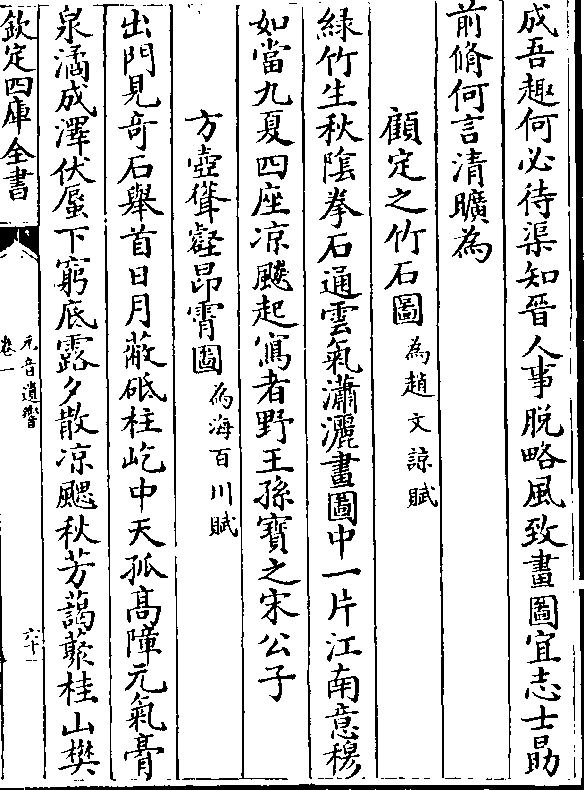 成吾趣何必待渠知晉人事脫略風致畫圖宜志士勗
前脩何言清曠為
顧定之竹石圖為趙文諒賦
綠竹生秋陰拳石通雲氣瀟灑畫圖中一片江南意穆
如當九夏四座凉飈起寫者野王孫寶之宋公子
方壺聳壑昂霄圖為海百川賦
出門見奇石舉首日月蔽砥柱屹中天孤高障元氣膏
泉潏成澤伏蜃下窮底露夕散凉颸秋芳藹叢桂山樊
欽定四庫全書
元音遺響
卷一
六十一